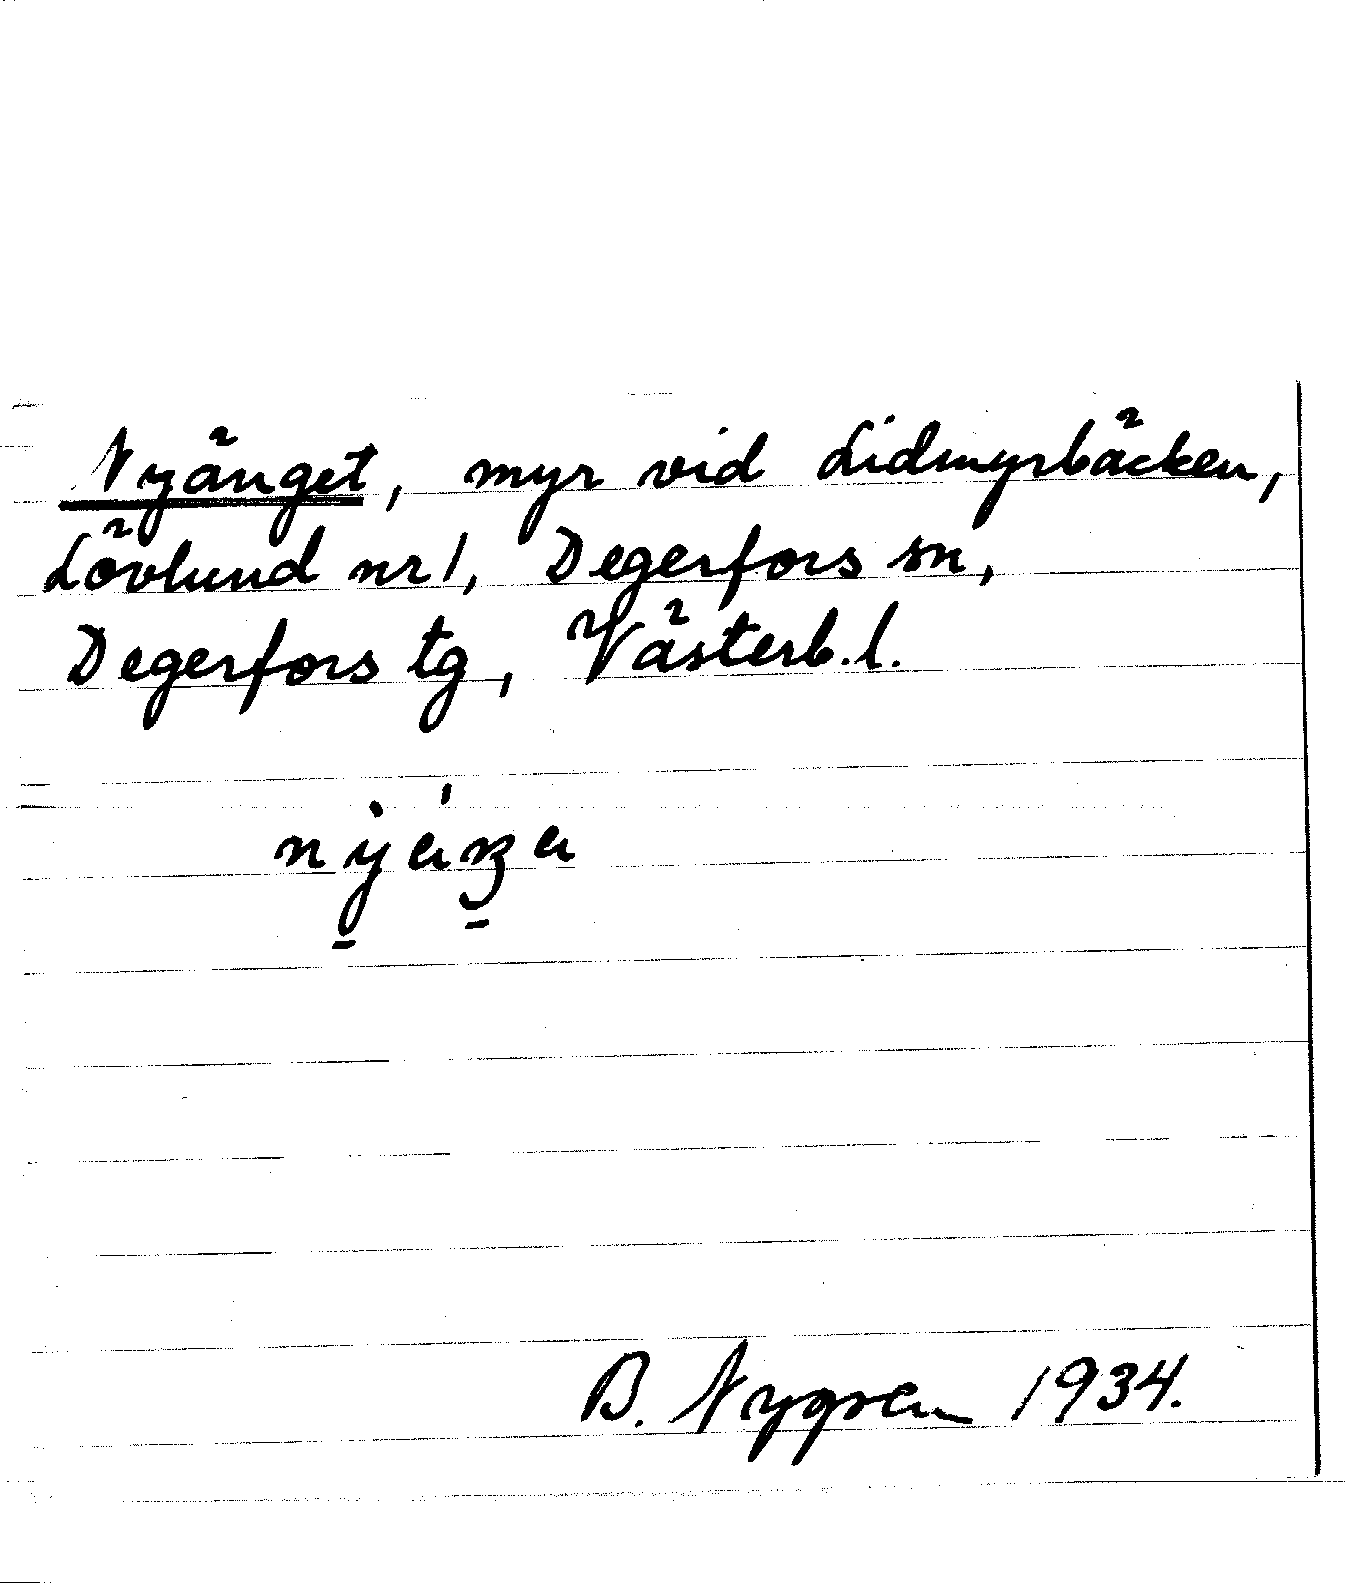 Nyänget, myr vid Lidmyrbäcken,
Lövlund nr 1, Degerfors sn,
Degerfors tg, Västerb. l.
B. Nygren 1934.